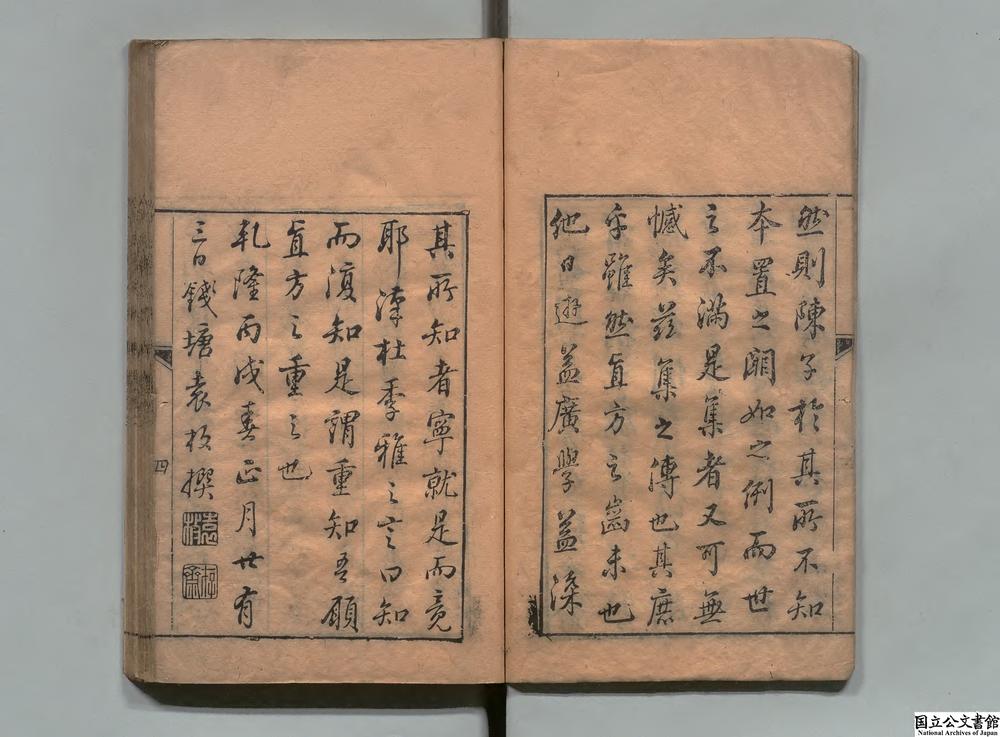 然則陳子於其所不知
本置之闕如之例而世
之不滿是集者又可無
憾矣茲集之傳也其庶
乎雖然直方之齒未也
他日遊益廣學益深
其所知者寧就是而竟
耶漳杜季雅之言曰知
而復知是謂重知吾願
直方之重之也
乾隆丙戌春正月廿有
三日錢塘袁枚撰
四
国立公文書館
National Archives of Japan